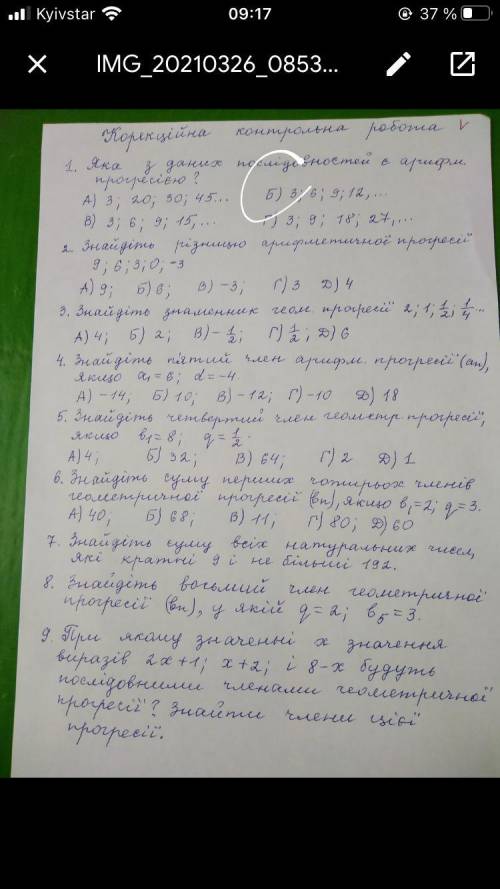 Kyivstar 09:17 37 %
IMG_20210326_0853...
Корекційна контрольна робота V
1. Яка з даних послідовностей є арифм.
прогресією?
А) 3; 20; 30; 45... Б) 3; 6; 9; 12,...
В) 3; 6; 9; 15,... Г) 3; 9; 18; 27,...
2. Знайдіть різницю арифметичної прогресії
9; 6; 3; 0; -3
А) 9; Б) 6; В) -3; Г) 3 Д) 4
3. Знайдіть знаменник геом. прогресії 2; 1; 1/2; 1/4...
А) 4; Б) 2; В) -1/2; Г) 1/2; Д) 6
4. Знайдіть п'ятий член арифм. прогресії (an),
якщо a1=6; d=-4.
А) -14; Б) 10; В) -12; Г) -10 Д) 18
5. Знайдіть четвертий член геометр. прогресії,
якщо b1=8; q=1/2.
А) 4; Б) 32; В) 64; Г) 2 Д) 1
6. Знайдіть суму перших чотирьох членів
геометричної прогресії (bn), якщо b1=2; q=3.
А) 40; Б) 68; В) 11; Г) 80; Д) 60
7. Знайдіть суму всіх натуральних чисел,
які кратні 9 і не більші 192.
8. Знайдіть восьмий член геометричної
прогресії (bn), у якій q=2; b5=3.
9. При якому значенні x значення
виразів 2x+1; x+2; і 8-x будуть
послідовними членами геометричної
прогресії? Знайти члени цієї
прогресії.